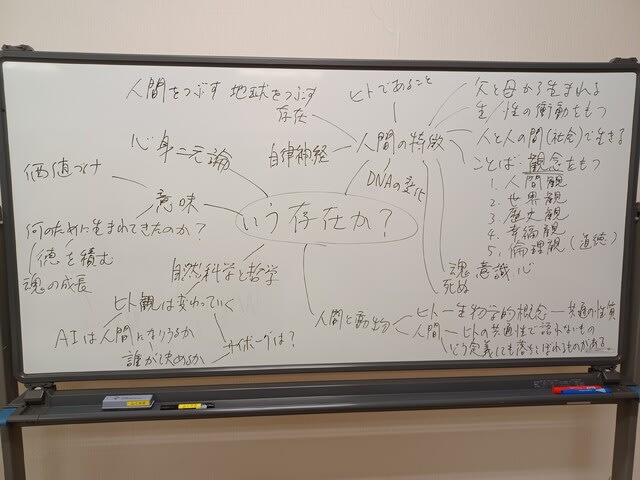 人間をつぶす 地球をつぶす
存在
ヒトであること
父と母から生まれる
生/性の衝動をもつ
人と人の間(社会)で生きる
ことば・観念をもつ
1. 人間観
2. 世界観
3. 歴史観
4. 幸福観
5. 倫理観(道徳)
人間の特徴
自律神経
心身二元論
価値づけ
意味
DNAの変化
いう存在か?
何のために生まれてきたのか?
徳を積む
魂の成長
自然科学と哲学
魂 意識 心
死ぬ
ヒト観は変わっていく
AIは人間になりうるか
誰が決めるか
サイボーグは?
人間と動物
ヒト—生物学的概念—共通の性質
人間—ヒトの共通性で語れないもの
どう定義しても落ちこぼれるものがある